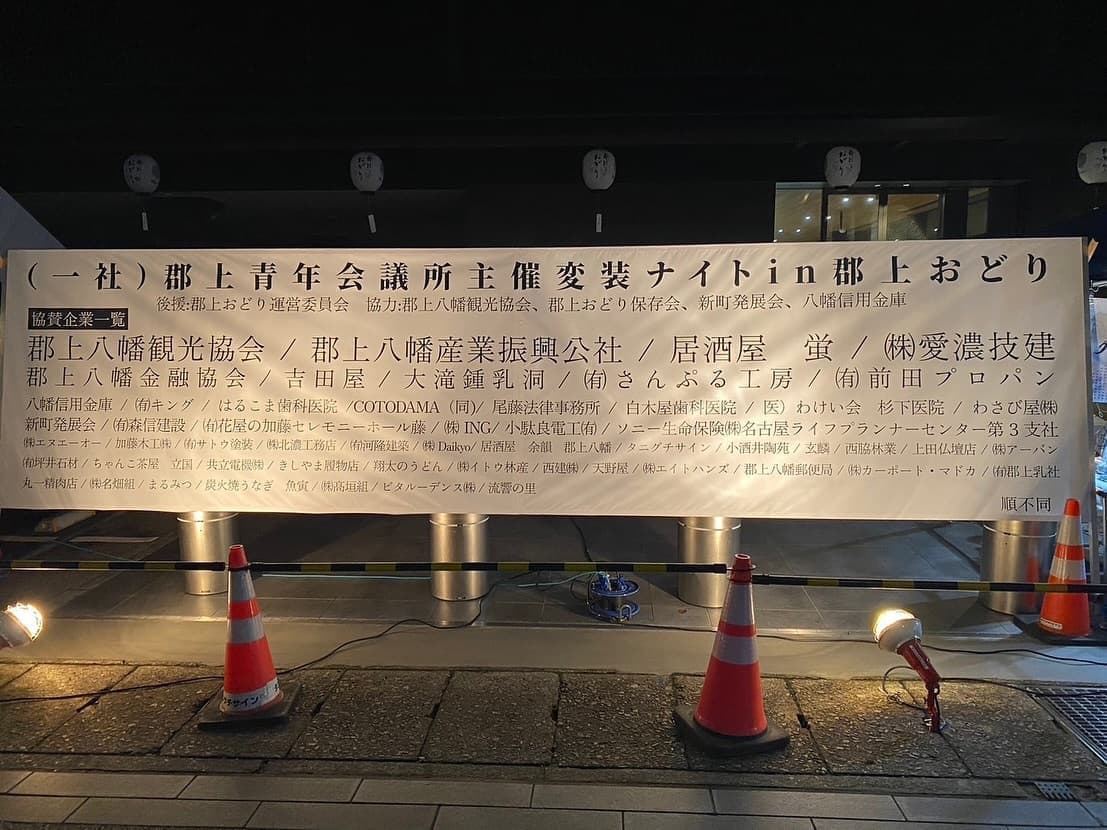 郡上おどり
郡上おどり
郡上おどり
(一社)郡上青年会議所主催変装ナイトin郡上おどり
後援:郡上おどり運営委員会　協力:郡上八幡観光協会、郡上おどり保存会、新町発展会、八幡信用金庫
協賛企業一覧
郡上八幡観光協会 / 郡上八幡産業振興公社 / 居酒屋　蛍 / ㈱愛濃技建
郡上八幡金融協会 / 吉田屋 / 大滝鍾乳洞 / ㈲さんぷる工房 / ㈲前田プロパン
八幡信用金庫 / ㈲キング / はるこま歯科医院 /COTODAMA（同)/ 尾藤法律事務所 / 白木屋歯科医院 / 医）わけい会　杉下医院 / わさび屋㈱
新町発展会 / ㈲森信建設 / ㈲花屋の加藤セレモニーホール藤 / ㈱ ING/ 小駄良電工㈲ / ソニー生命保険㈱名古屋ライフプランナーセンター第３支社
㈱エヌエーオー / 加藤木工㈱ / ㈲サトウ塗装 / ㈱北濃工務店 / ㈲河隆建築 / ㈱ Daikyo/ 居酒屋　余韻　郡上八幡 / タニグチサイン / 小酒井陶苑 / 玄麟 / 西脇林業 / 上田仏壇店 / ㈱アーバン
㈲坪井石材 / ちゃんこ茶屋　立国 / 共立電機㈱ / きしやま履物店 / 翔太のうどん / ㈱イトウ林産 / 西建㈱ / 天野屋 / ㈱エイトハンズ / 郡上八幡郵便局 / ㈱カーポート・マドカ / ㈲郡上乳社
丸一精肉店 / ㈱名畑組 / まるみつ / 炭火焼うなぎ　魚寅 / ㈱髙垣組 / ビタルーデンス㈱ / 流響の里
順不同
サイン